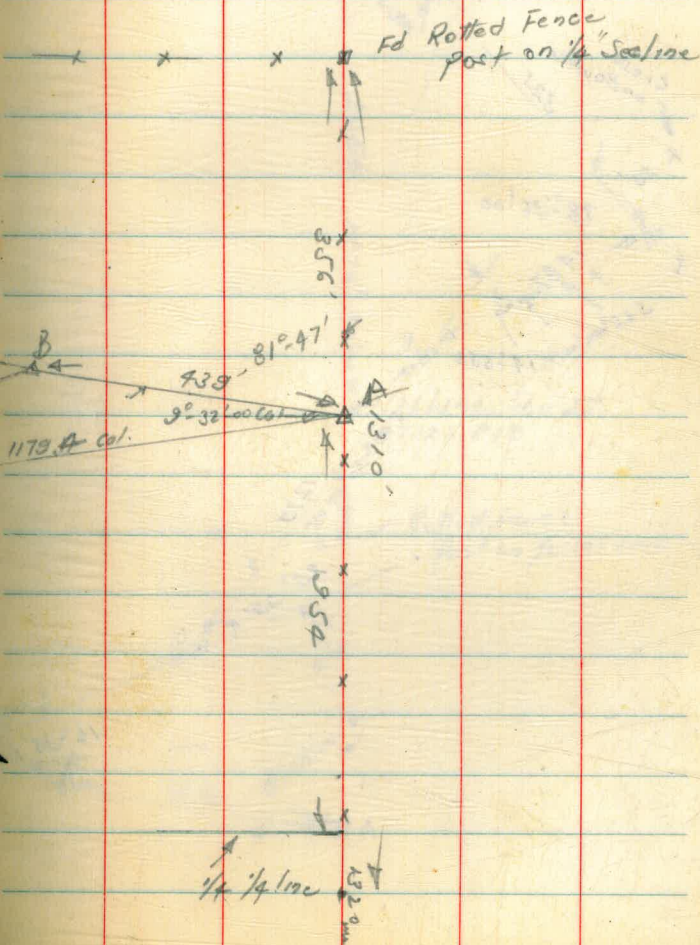 Fd Rotted Fence
Post on 1/4" Secline
356'
B
439'
81°-47'
9°-32'00 Cal.
A
1179 Cal.
1310'
954
1/4 1/4 line
1320